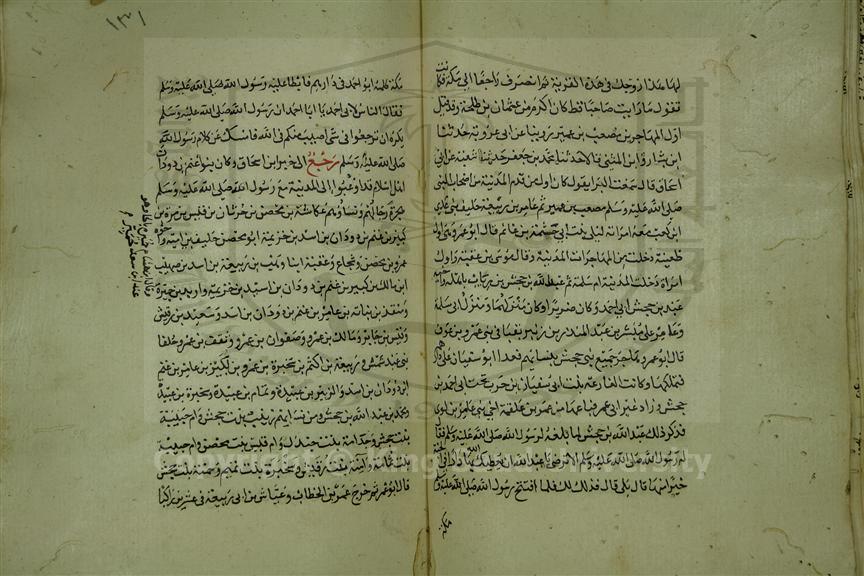 لهما عذا زوجك في هذه القرية ثم انصرف راجعا الى مكة فكانت
تقول ما رايت صاحبا قط كان اكرم من عثمان بن طلحة وقد قيل
اول المهاجرين مصعب بن عمير روينا عن ابي عروبة حدثنا
ابن بشار وابن المثنى قالا حدثنا محمد بن جعفر حدثنا شعبة عن ابي
اسحاق قال سمعت البرا يقول كان اول من قدم المدينة من اصحاب النبي
صلى الله عليه وسلم مصعب بن عمير ثم عامر بن ربيعة حليف بني عدي
ابن كعب معه امراته ليلى بنت ابي حثمة بن غانم قال ابو عمر وهي اول
ظعينة دخلت من المهاجرات المدينة وقال موسى بن عقبة واول
امراة دخلت المدينة ام سلمة ثم عبد الله بن جحش بن رياب باهله واخيه
عبد بن جحش ابي احمد وكان ضريرا وكان منزلهما ومنزل ابي سلمة
وعامر على مبشر بن عبد المنذر بن زنبر بقبا في بني عمرو بن عوف
قال ابو عمر وهاجر جميع بني جحش بنسايهم فعدا ابو سفيان على دارهم
فتملكها وكانت الفارعة بنت ابي سفيان بن حرب تحت ابي احمد بن
جحش وزاد غير ابي عمر فباعها من عمرو بن علقمة اخي بني عامر بن لوي
فذكر ذلك عبد الله بن جحش لما بلغه لرسول الله صلى الله عليه وسلم فقال
له رسول الله صلى الله عليه وسلم الا ترضى يا عبد الله ان يعطيك الله بها دارا في الجنة
خيرا منها قال بلى قال فذلك لك فلما افتتح رسول الله صلى الله عليه وسلم
مكة
١٣١
مكة كلمه ابو احمد في دارهم فابطا عليه رسول الله صلى الله عليه وسلم
فقال الناس لابي احمد يا ابا احمد ان رسول الله صلى الله عليه وسلم
يكره ان ترجعوا في شي اصيب منكم في الله فامسك عن كلام رسول الله
صلى الله عليه وسلم رجع الى خبر ابن اسحاق وكان بنو غنم بن دودان
اهل اسلام قد اوعبوا الى المدينة مع رسول الله صلى الله عليه وسلم
هجرة رجالهم ونساوهم عكاشة بن محصن بن حرثان بن قيس بن مرة بن
كبير بن غنم بن دودان بن اسد بن خزيمة ابو محصن حليف بني امية واخوه
عمرو بن محصن وشجاع وعقبة ابنا وهب بن ربيعة بن اسد بن صهيب
ابن مالك بن كبير بن غنم بن دودان بن اسد بن خزيمة واربد بن حميرة
ومنقذ بن نباتة بن عامر بن غنم بن دودان بن اسد وسعيد بن رقيش
وقيس بن جابر ومالك بن عمرو وصفوان بن عمرو وثقف بن عمرو حلفا
بني عبد شمس وربيعة بن اكثم بن سخبرة بن عمرو بن لكيز بن عامر بن غنم
ابن دودان بن اسد والزبير بن عبيدة وتمام بن عبيدة وسخبرة بن عبيدة
ومحمد بن عبد الله بن جحش ومن نسايهم زينب بنت جحش وام حبيبة
بنت جحش وجدامة بنت جندل وام قيس بنت محصن وام حبيبة
بنت ثمامة وامنة بنت رقيش وسخبرة بنت تميم وحمنة بنت جحش
قال ابو عمر ثم خرج عمر بن الخطاب وعياش بن ابي ربيعة في عشرين راكبا
Copyright © King Saud University